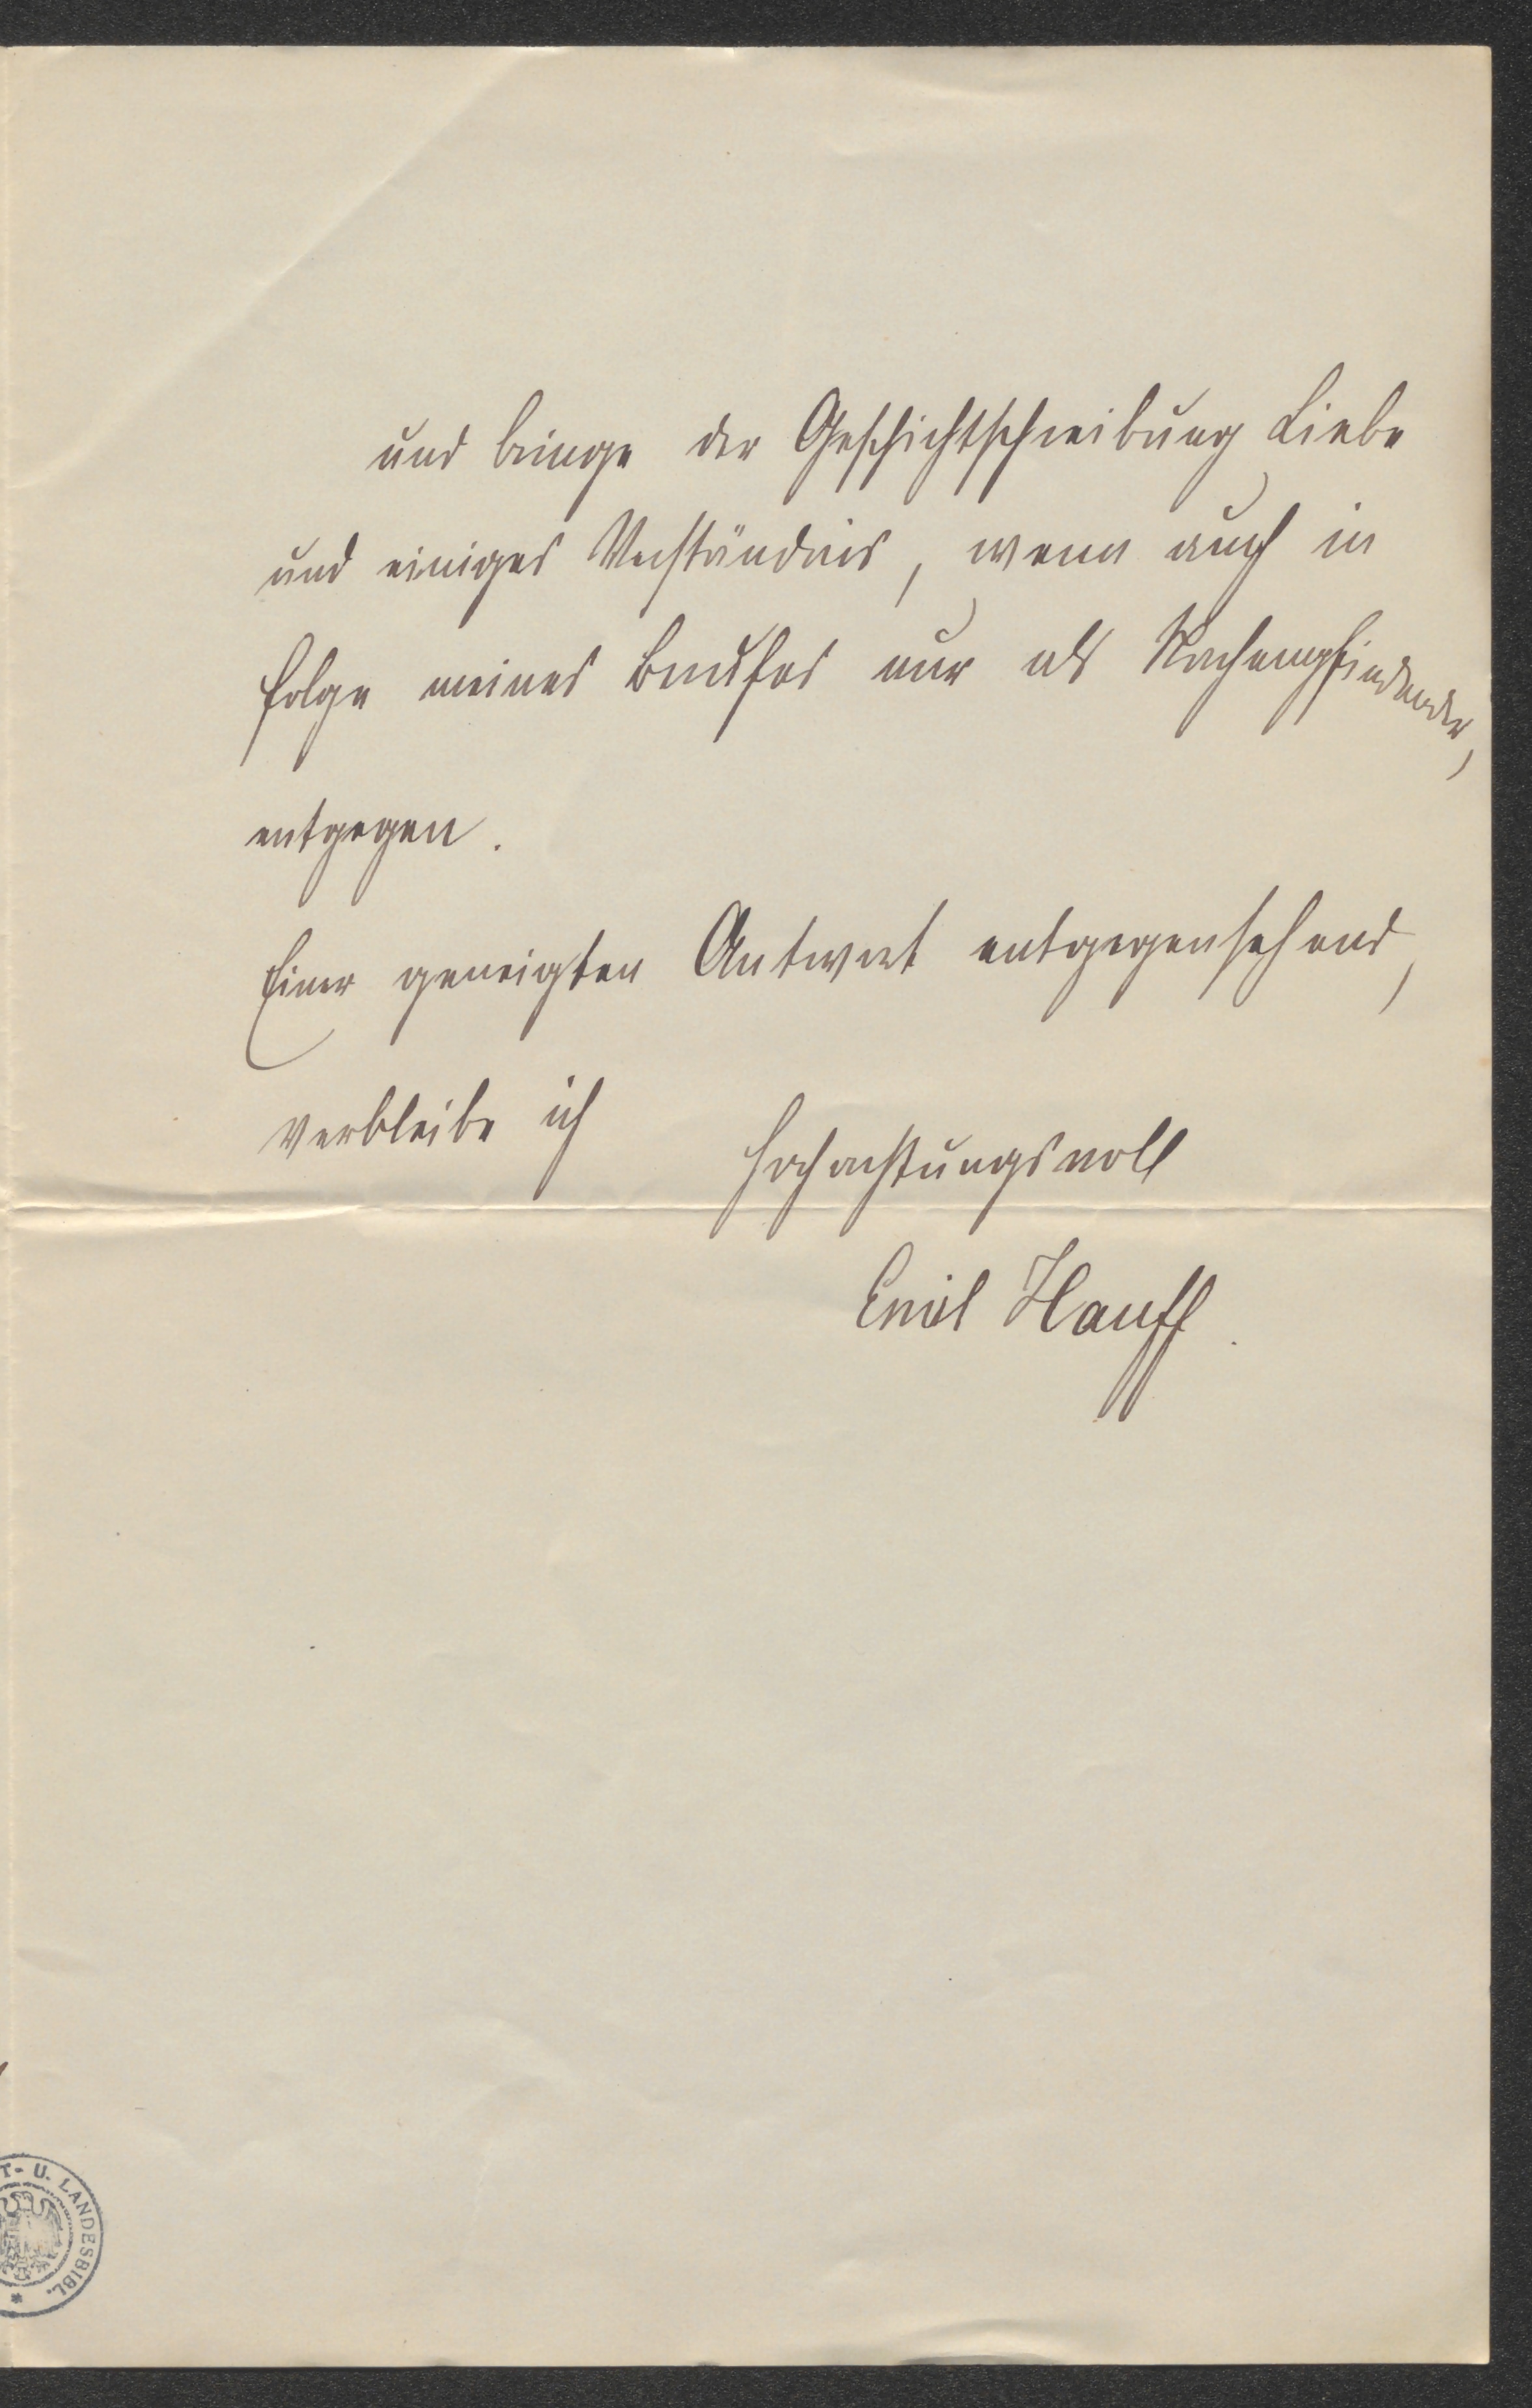 und bringe der Geschichtschreibung Liebe
und einiges Verständnis, wenn auch in
folge meines Berufes nur als Nachempfindender,
entgegen.
Einer geneigten Antwort entgegensehend,
verbleibe ich
Hochachtungsvoll
Emil Hauff.
T- U. LANDESBIBL. *